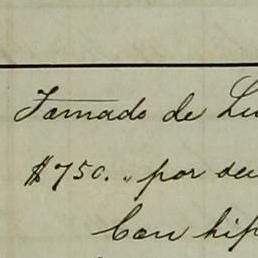 Tomado de Lu
$750. „ por su
Con hip